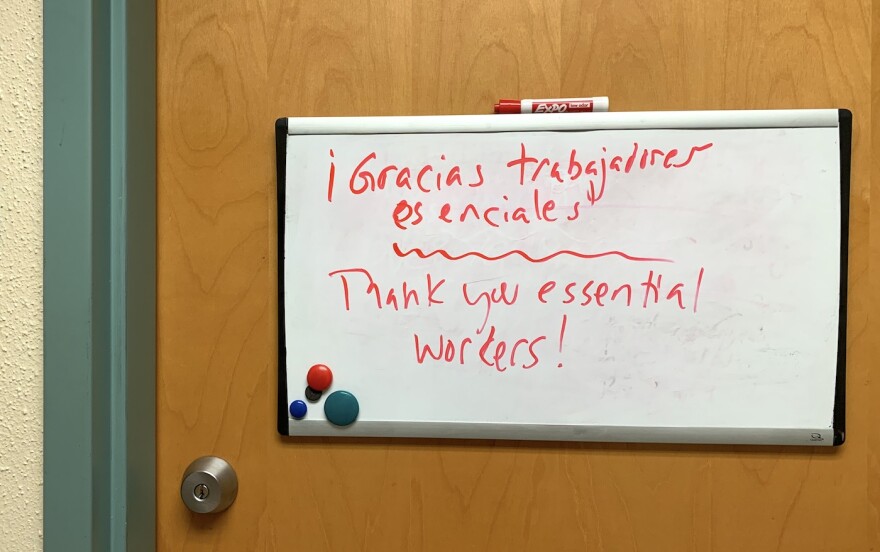 EXPO
¡Gracias trabajadores
esenciales!
Thank you essential
workers!